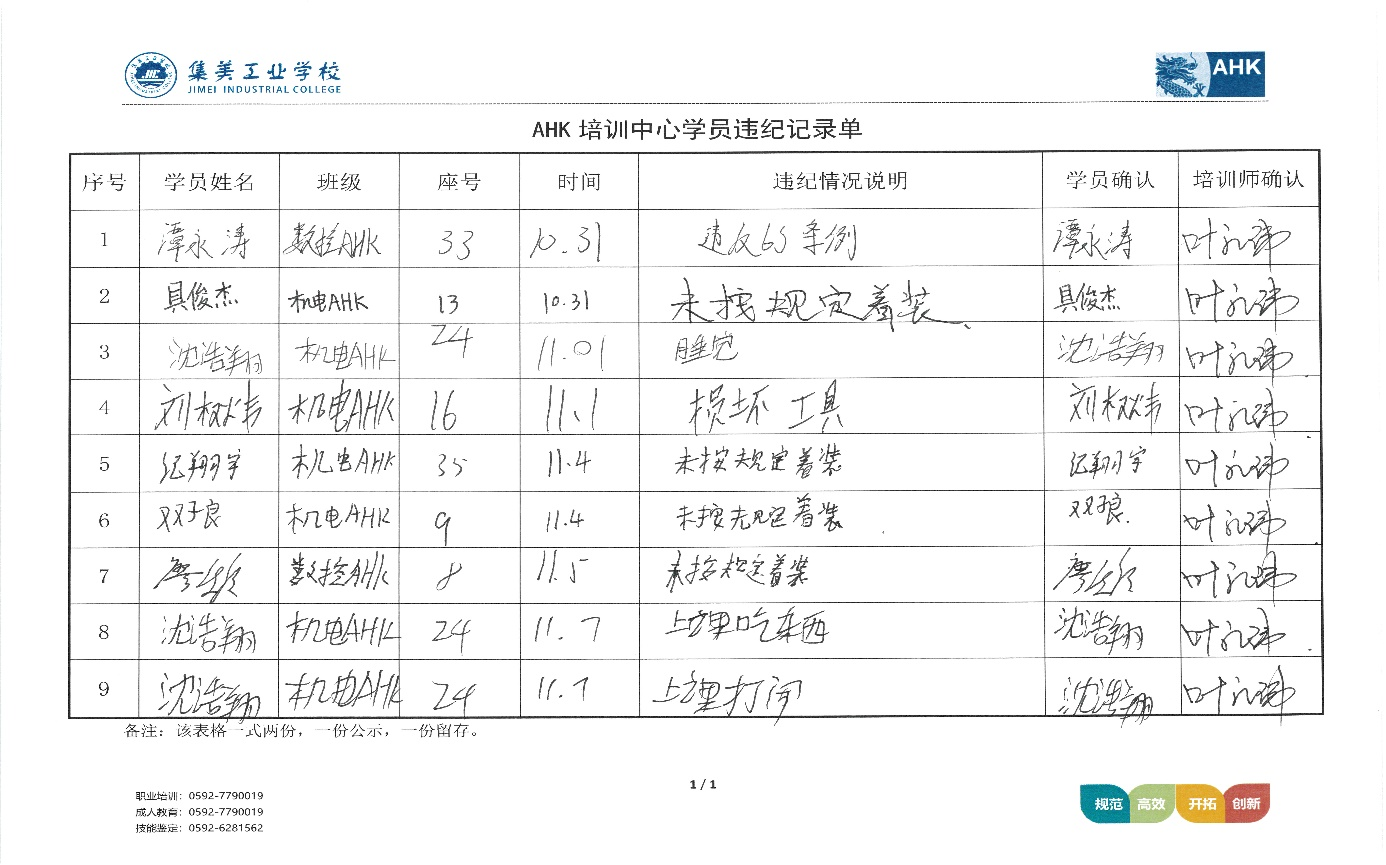 集美工业学校
JIMEI INDUSTRIAL COLLEGE
AHK
AHK 培训中心学员违纪记录单
序号 学员姓名 班级 座号 时间 违纪情况说明 学员确认 培训师确认
1 谭永涛 数控AHK 33 10.31 违反6S条例 谭永涛
2 具俊杰 机电AHK 13 10.31 未按规定着装、 具俊杰
3 沈浩翔 机电AHK 24 11.01 睡觉 沈浩翔
4 机电AHK 16 11.1 损坏工具
5 纪翔宇 机电AHK 35 11.4 未按规定着装 纪翔宇
6 机电AHK 9 11.4 未按规定着装
7 数控AHK 8 11.5 未按规定着装
8 沈浩翔 机电AHK 24 11.7 上课吃东西 沈浩翔
9 沈浩翔 机电AHK 24 11.7 沈浩翔
备注：该表格一式两份，一份公示，一份留存。
1 / 1
职业培训：0592-7790019
成人教育：0592-7790019
技能鉴定：0592-6281562
规范 高效 开拓 创新